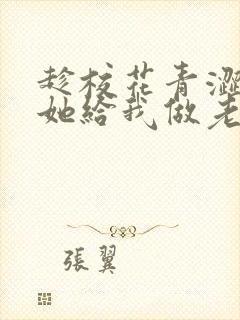 趁校花青澀
她給我做老
張翼